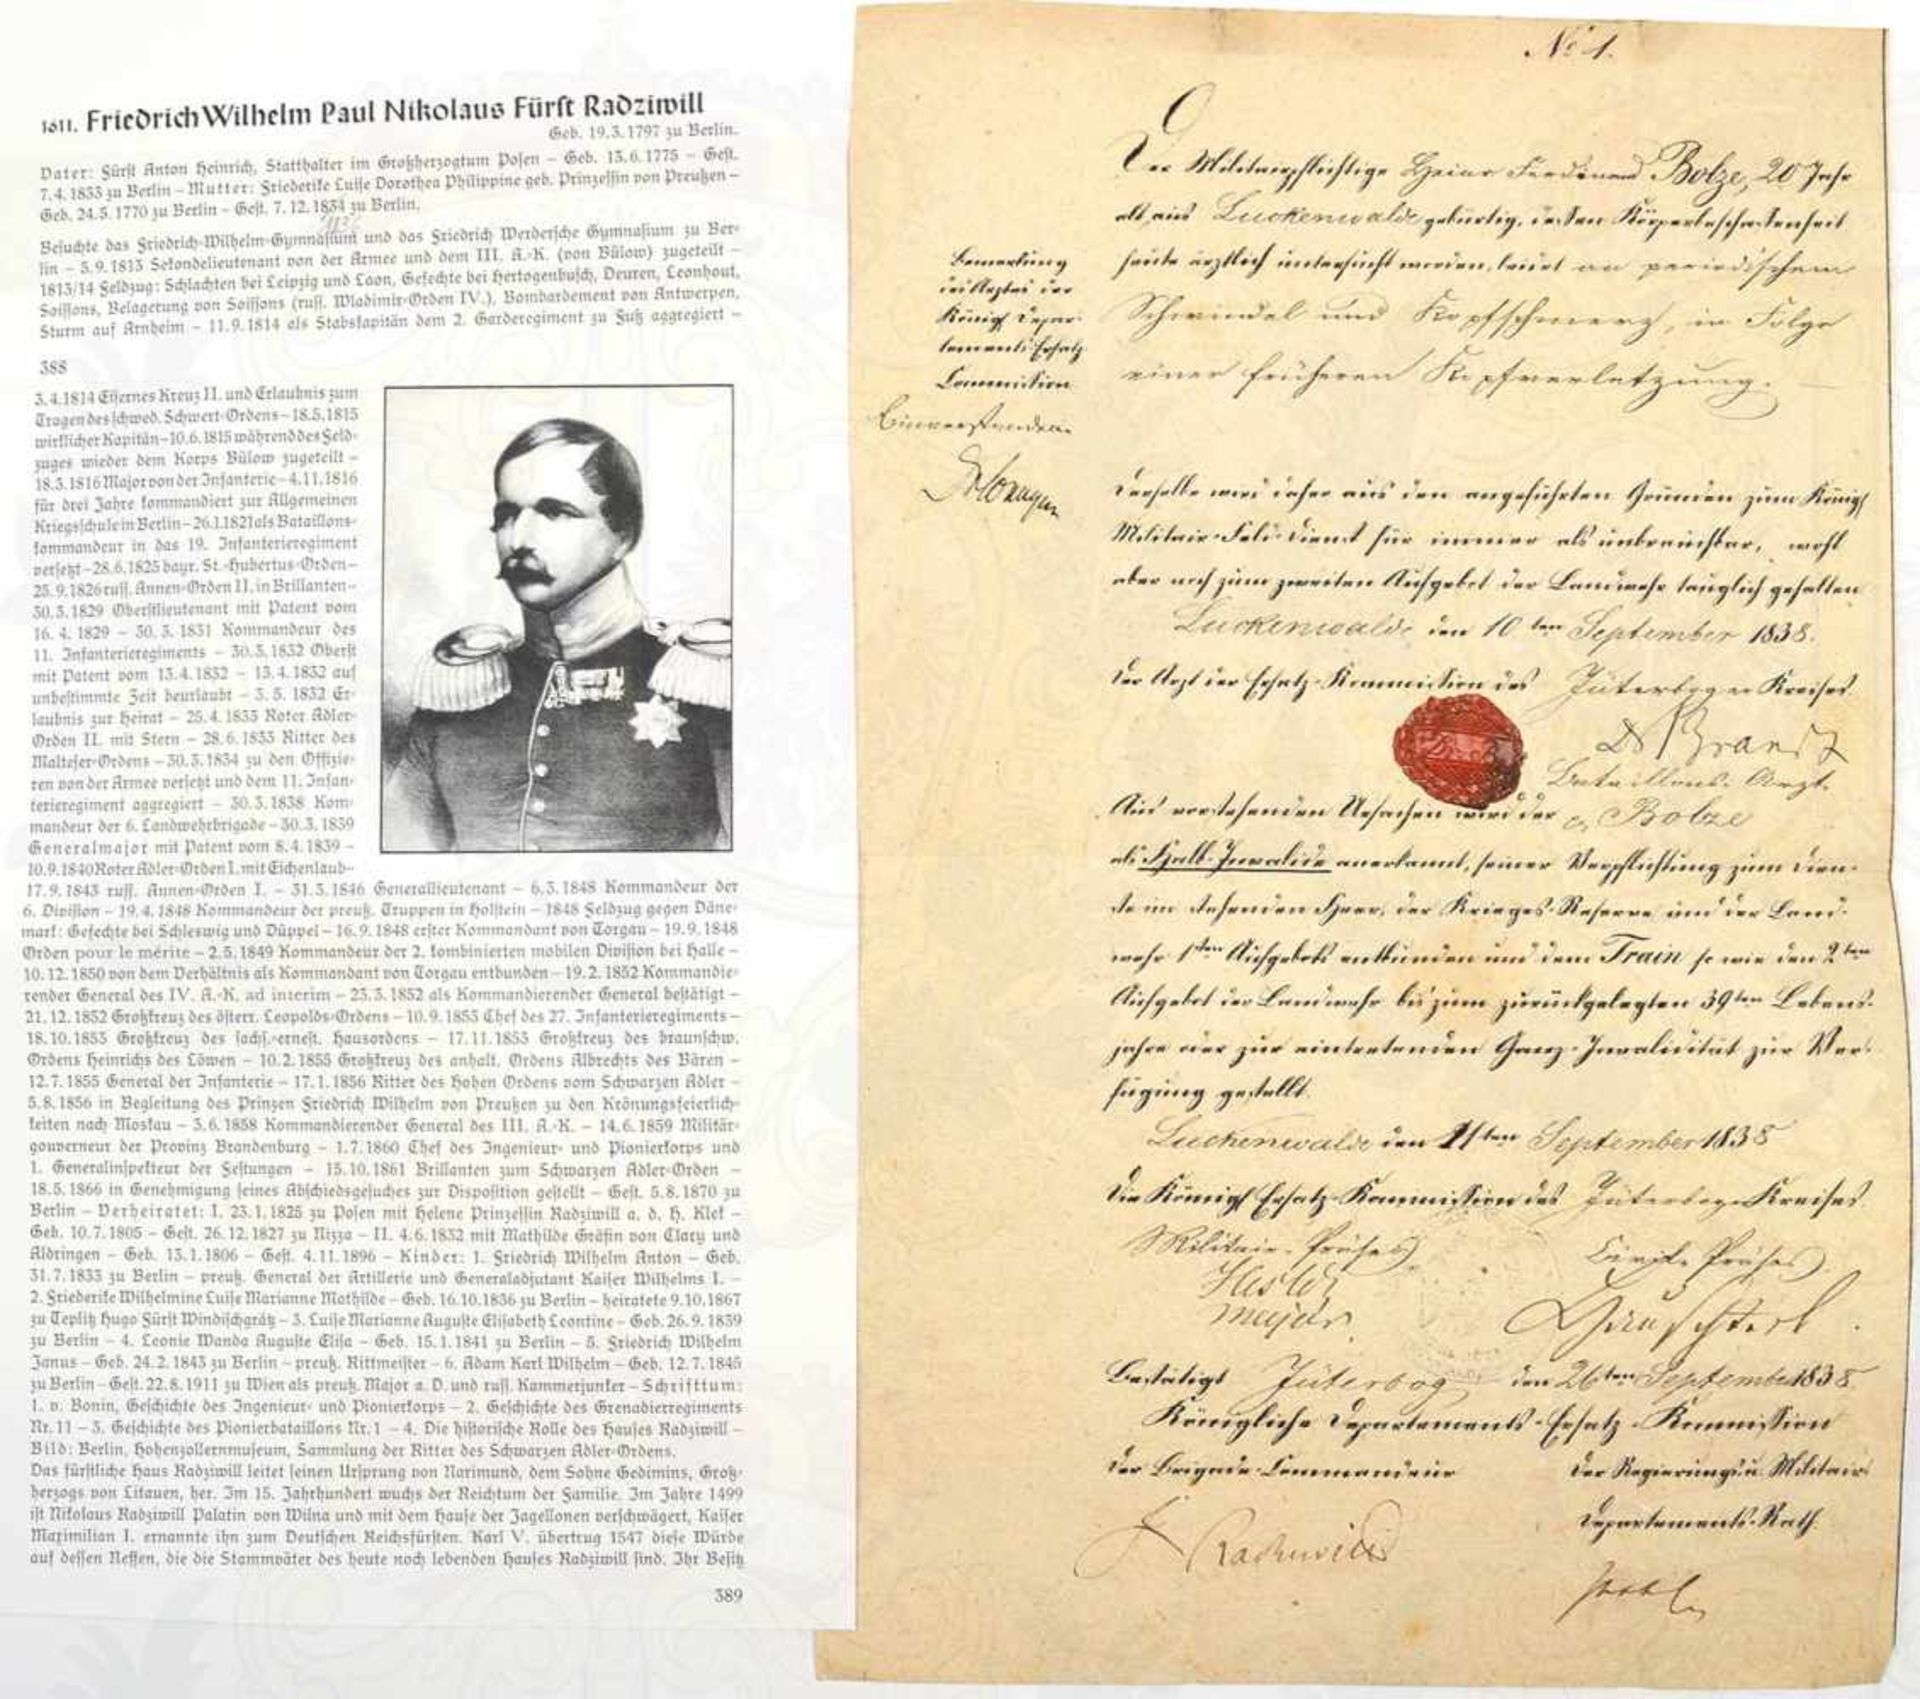 1611. Friedrich Wilhelm Paul Nikolaus Fürst Radziwill
Geb. 19.3.1797 zu Berlin.
Vater: Fürst Anton Heinrich, Statthalter im Großherzogtum Posen – Geb. 13.6.1775 – Gest.
7.4.1833 zu Berlin – Mutter: Friederike Luise Dorothea Philippine geb. Prinzessin von Preußen –
Geb. 24.5.1770 zu Berlin – Gest. 7.12.1834 zu Berlin.
Besuchte das Friedrich-Wilhelm-Gymnasium und das Friedrich Werdersche Gymnasium zu Ber-
lin – 5.9.1813 Sekondelieutenant von der Armee und dem III. A.-K. (von Bülow) zugeteilt –
1813/14 Feldzug: Schlachten bei Leipzig und Laon, Gefechte bei Hertogenbusch, Deuren, Leonhout,
Soissons, Belagerung von Soissons (russ. Wladimir-Orden IV.), Bombardement von Antwerpen,
Sturm auf Arnheim – 11.9.1814 als Stabskapitän dem 2. Garderegiment zu Fuß aggregiert –
388
3.4.1814 Eisernes Kreuz II. und Erlaubnis zum
Tragen des schwed. Schwert-Ordens – 18.5.1815
wirklicher Kapitän – 10.6.1815 während des Feld-
zuges wieder dem Korps Bülow zugeteilt –
18.3.1816 Major von der Infanterie – 4.11.1816
für drei Jahre kommandiert zur Allgemeinen
Kriegsschule in Berlin – 26.1.1821 als Bataillons-
kommandeur in das 19. Infanterieregiment
versetzt – 28.6.1825 bayr. St.-Hubertus-Orden –
25.9.1826 russ. Annen-Orden II. in Brillanten –
30.3.1829 Oberstlieutenant mit Patent vom
16.4.1829 – 30.3.1831 Kommandeur des
11. Infanterieregiments – 30.3.1832 Oberst
mit Patent vom 13.4.1832 – 13.4.1832 auf
unbestimmte Zeit beurlaubt – 3.5.1832 Er-
laubnis zur Heirat – 25.4.1833 Roter Adler-
Orden II. mit Stern – 28.6.1833 Ritter des
Malteser-Ordens – 30.3.1834 zu den Offizie-
ren von der Armee versetzt und dem 11. Infan-
terieregiment aggregiert – 30.3.1838 Kom-
mandeur der 6. Landwehrbrigade – 30.3.1839
Generalmajor mit Patent vom 8.4.1839 –
10.9.1840 Roter Adler-Orden I. mit Eichenlaub –
17.9.1843 russ. Annen-Orden I. – 31.3.1846 Generallieutenant – 6.3.1848 Kommandeur der
6. Division – 19.4.1848 Kommandeur der preuß. Truppen in Holstein – 1848 Feldzug gegen Däne-
mark: Gefechte bei Schleswig und Düppel – 16.9.1848 erster Kommandant von Torgau – 19.9.1848
Orden pour le mérite – 2.5.1849 Kommandeur der 2. kombinierten mobilen Division bei Halle –
10.12.1850 von dem Verhältnis als Kommandant von Torgau entbunden – 19.2.1852 Kommandie-
render General des IV. A.-K. ad interim – 23.3.1852 als Kommandierender General bestätigt –
21.12.1852 Großkreuz des österr. Leopolds-Ordens – 10.9.1853 Chef des 27. Infanterieregiments –
18.10.1853 Großkreuz des sachs.-ernest. Hausordens – 17.11.1853 Großkreuz des braunschw.
Ordens Heinrichs des Löwen – 10.2.1855 Großkreuz des anhalt. Ordens Albrechts des Bären –
12.7.1855 General der Infanterie – 17.1.1856 Ritter des Hohen Ordens vom Schwarzen Adler –
5.8.1856 in Begleitung des Prinzen Friedrich Wilhelm von Preußen zu den Krönungsfeierlich-
keiten nach Moskau – 3.6.1858 Kommandierender General des III. A.-K. – 14.6.1859 Militär-
gouverneur der Provinz Brandenburg – 1.7.1860 Chef des Ingenieur- und Pionierkorps und
1. Generalinspekteur der Festungen – 15.10.1861 Brillanten zum Schwarzen Adler-Orden –
18.5.1866 in Genehmigung seines Abschiedsgesuches zur Disposition gestellt – Gest. 5.8.1870 zu
Berlin – Verheiratet: I. 23.1.1825 zu Posen mit Helene Prinzessin Radziwill a. d. H. Klek –
Geb. 10.7.1805 – Gest. 26.12.1827 zu Nizza – II. 4.6.1832 mit Mathilde Gräfin von Clary und
Aldringen – Geb. 13.1.1806 – Gest. 4.11.1896 – Kinder: 1. Friedrich Wilhelm Anton – Geb.
31.7.1833 zu Berlin – preuß. General der Artillerie und Generaladjutant Kaiser Wilhelms I. –
2. Friederike Wilhelmine Luise Marianne Mathilde – Geb. 16.10.1836 zu Berlin – heiratete 9.10.1867
zu Teplitz Hugo Fürst Windischgrätz – 3. Luise Marianne Auguste Elisabeth Leontine – Geb. 26.9.1839
zu Berlin – 4. Leonie Wanda Auguste Elisa – Geb. 15.1.1841 zu Berlin – 5. Friedrich Wilhelm
Janus – Geb. 24.2.1843 zu Berlin – preuß. Rittmeister – 6. Adam Karl Wilhelm – Geb. 12.7.1845
zu Berlin – Gest. 22.8.1911 zu Wien als preuß. Major a. D. und russ. Kammerjunker – Schrifttum:
1. v. Bonin, Geschichte des Ingenieur- und Pionierkorps – 2. Geschichte des Grenadierregiments
Nr. 11 – 3. Geschichte des Pionierbataillons Nr. 1 – 4. Die historische Rolle des Hauses Radziwill –
Bild: Berlin, Hohenzollernmuseum, Sammlung der Ritter des Schwarzen Adler-Ordens.
Das fürstliche Haus Radziwill leitet seinen Ursprung von Narimund, dem Sohne Gedimins, Groß-
herzogs von Litauen, her. Im 15. Jahrhundert wuchs der Reichtum der Familie. Im Jahre 1499
ist Nikolaus Radziwill Palatin von Wilna und mit dem Hause der Jagellonen verschwägert, Kaiser
Maximilian I. ernannte ihn zum Deutschen Reichsfürsten. Karl V. übertrug 1547 diese Würde
auf dessen Neffen, die die Stammväter des heute noch lebenden Hauses Radziwill sind. Ihr Besitz
389
No 1.
Der Militairpflichtige Ferdinand Bolze, 20 Jahr
alt, aus Luckenwalde gebürtig, dessen Körperbeschaffenheit
heute ärztlich untersucht worden, leidet an periodischem
Schwindel und Kopfschmerz, in Folge
einer früheren Kopfverletzung.
Bemerkung
des Arztes der
Königl Depar-
tements-Ersatz
Commission
Einverstanden
Derselbe wird daher aus den angeführten Gründen zum Königl
Militair-Feld-Dienst für immer als unbrauchbar, wohl
aber noch zum zweiten Aufgebot der Landwehr tauglich gehalten
Luckenwalde den 10ten September 1838.
Der Arzt der Ersatz-Kommission des Jüterboger Kreises
Bataillons-Arzt.
Aus vorstehenden Ursachen wird der Bolze
als Halb-Invalide anerkannt, seiner Verpflichtung zum Dien-
ste im stehenden Heer, der Krieges-Reserve und der Land-
wehr 1ten Aufgebots entbunden und dem Train so wie den 2ten
Aufgebot der Landwehr bis zum zurückgelegten 39ten Lebens-
jahre oder zur eintretenden Ganz-Invalidität zur Ver-
fügung gestellt.
Luckenwalde den 11ten September 1838
Die Königl Ersatz-Kommission des Jüterboger Kreises
Militair-Präses Civil-Präses
Major
Bestätigt Jüterbog den 26ten September 1838
Königliche Departements-Ersatz-Kommission
Der Brigade-Commandeur
Der Regierungs u. Militair
Departements-Rath.
Radziwill